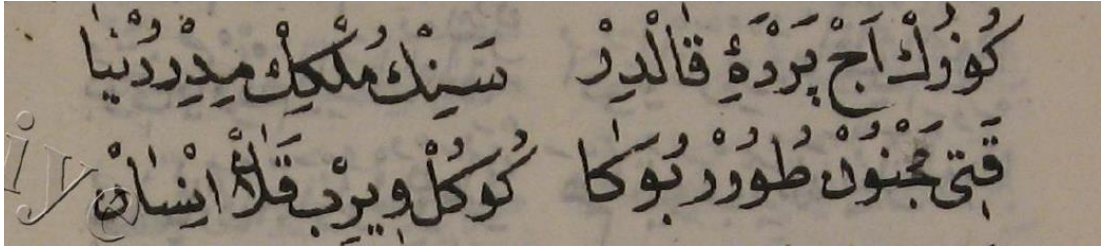 كُوزُكْ اَجْ پَرْدَۀِ قَالْدِرْ سَنِڭْ مُلْكِڭْ مِيدِرْ دُنْيَا
قَتِى مَجْنُونْ طُورُرْ بُوكَا كُوكُلْ وِيرِبْ قَلَانْ اِنْسَانْ